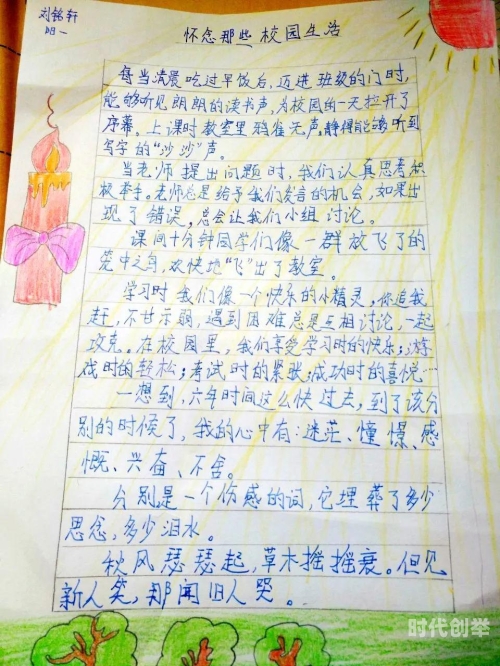 刘铭轩
阳一
怀念那些校园生活
每当清晨吃过早饭后,迈进班级的门时,
能够听见朗朗的读书声,为校园的一天拉开了
序幕。上课时教室里鸦雀无声,静得能够听到
写字的“沙沙”声。
当老师提出问题时,我们认真思考积
极举手。老师总是给予我们发言的机会,如果出
现了错误,总会让我们小组讨论。
课间十分钟同学们像一群放飞了的
笼中之鸟,欢快地“飞”出了教室。
学习时我们像一个快乐的小精灵,你追我
赶,不甘示弱,遇到困难总是互相讨论,一起
攻克。在校园里,我们享受学习时的快乐;游
戏时的轻松;考试时的紧张;成功时的喜悦…
一想到,六年时间这么快过去,到了该分
别的时候了,我的心中有:迷茫、憧憬、感
慨、兴奋、不舍。
分别是一个伤感的词,它埋葬了多少
思念,多少泪水。
秋风瑟瑟起,草木摇摇衰。但见
新人笑,那闻旧人哭。
时代创举